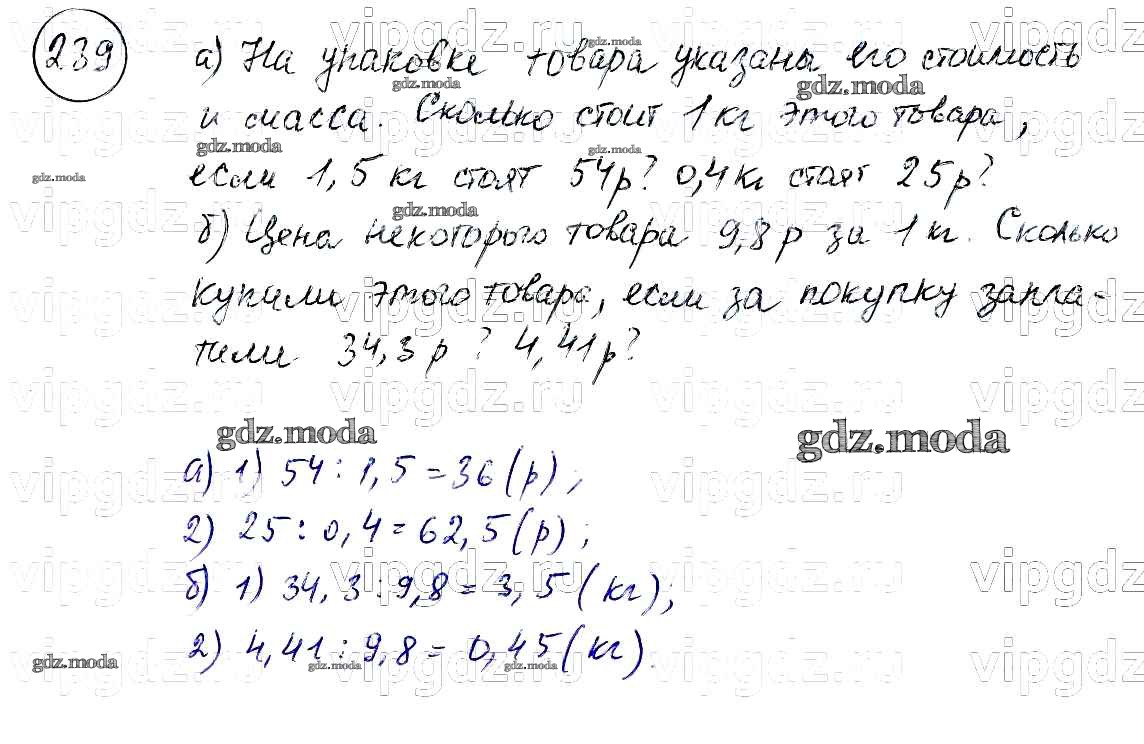 239 а) На упаковке товара указаны его стоимость
и масса. Сколько стоит 1 кг этого товара,
если 1,5 кг стоят 54р? 0,4 кг стоят 25р?
б) Цена некоторого товара 9,8 р за 1 кг. Сколько
купили этого товара, если за покупку запла-
тили 34,3 р? 4,41р?
а) 1) 54 : 1,5 = 36 (р);
2) 25 : 0,4 = 62,5 (р);
б) 1) 34,3 : 9,8 = 3,5 (кг);
2) 4,41 : 9,8 = 0,45 (кг).
gdz.moda
vipgdz.ru